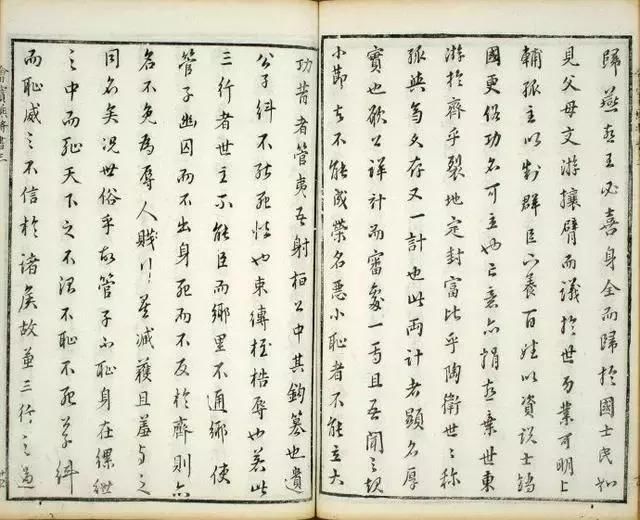 歸燕燕王必喜身全而歸於國士民如
見父母交游攘臂而議於世功業可明上
輔孤主以制群臣下養百姓以資說士矯
國更俗功名可立也亡意亦捐燕棄世東
游於齊乎裂地定封富比乎陶衛世世稱
孤與齊久存又一計也此兩計者顯名厚
實也欲公詳計而審處一焉且吾聞之規
小節者不能成榮名惡小恥者不能立大
功昔者管夷吾射桓公中其鉤篡也遺
公子糾不能死怯也束縛桎梏辱也若此
三行者世主不能臣而鄉里不通鄉使
管子幽囚而不出身死而不反於齊則亦
名不免為辱人賤行矣臧獲且羞與之
同名矣況世俗乎故管子不恥身在縲紲
之中而恥天下之不治不恥不死公子糾
而恥威之不信於諸侯故兼三行之過